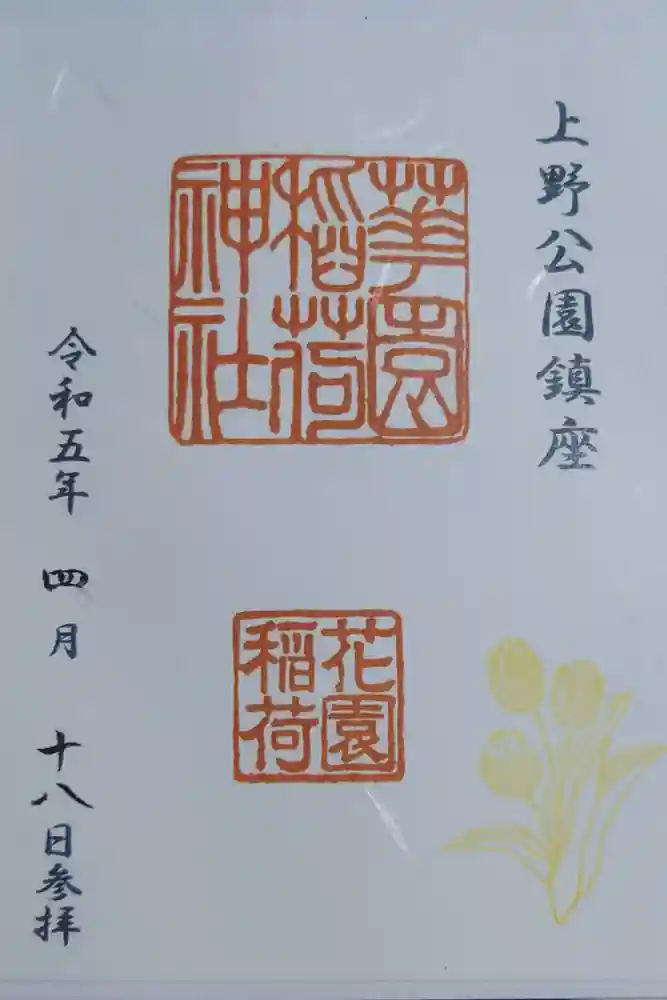 上野公園鎮座
華園
稲荷
神社
花園
稲荷
令和五年 四月 十八日参拝